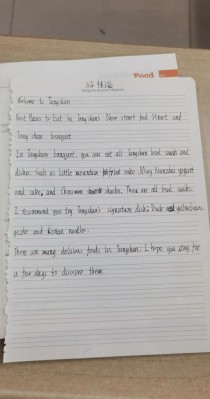 Food
Welcome to Tangshan
Best Places to Eat in Tangshan: New street food Street and
Tangshan banquet
In Tangshan banquet, you can eat all Tangshan local snacks and
dishes. Such as little mountain fried cake, yogurt
and cake, and Chinese . These are all local snacks.
I recommend you try Tangshan's signature dish:
and noodles.
There are many delicious foods in Tangshan. I hope you stay for
a few days to discover them.